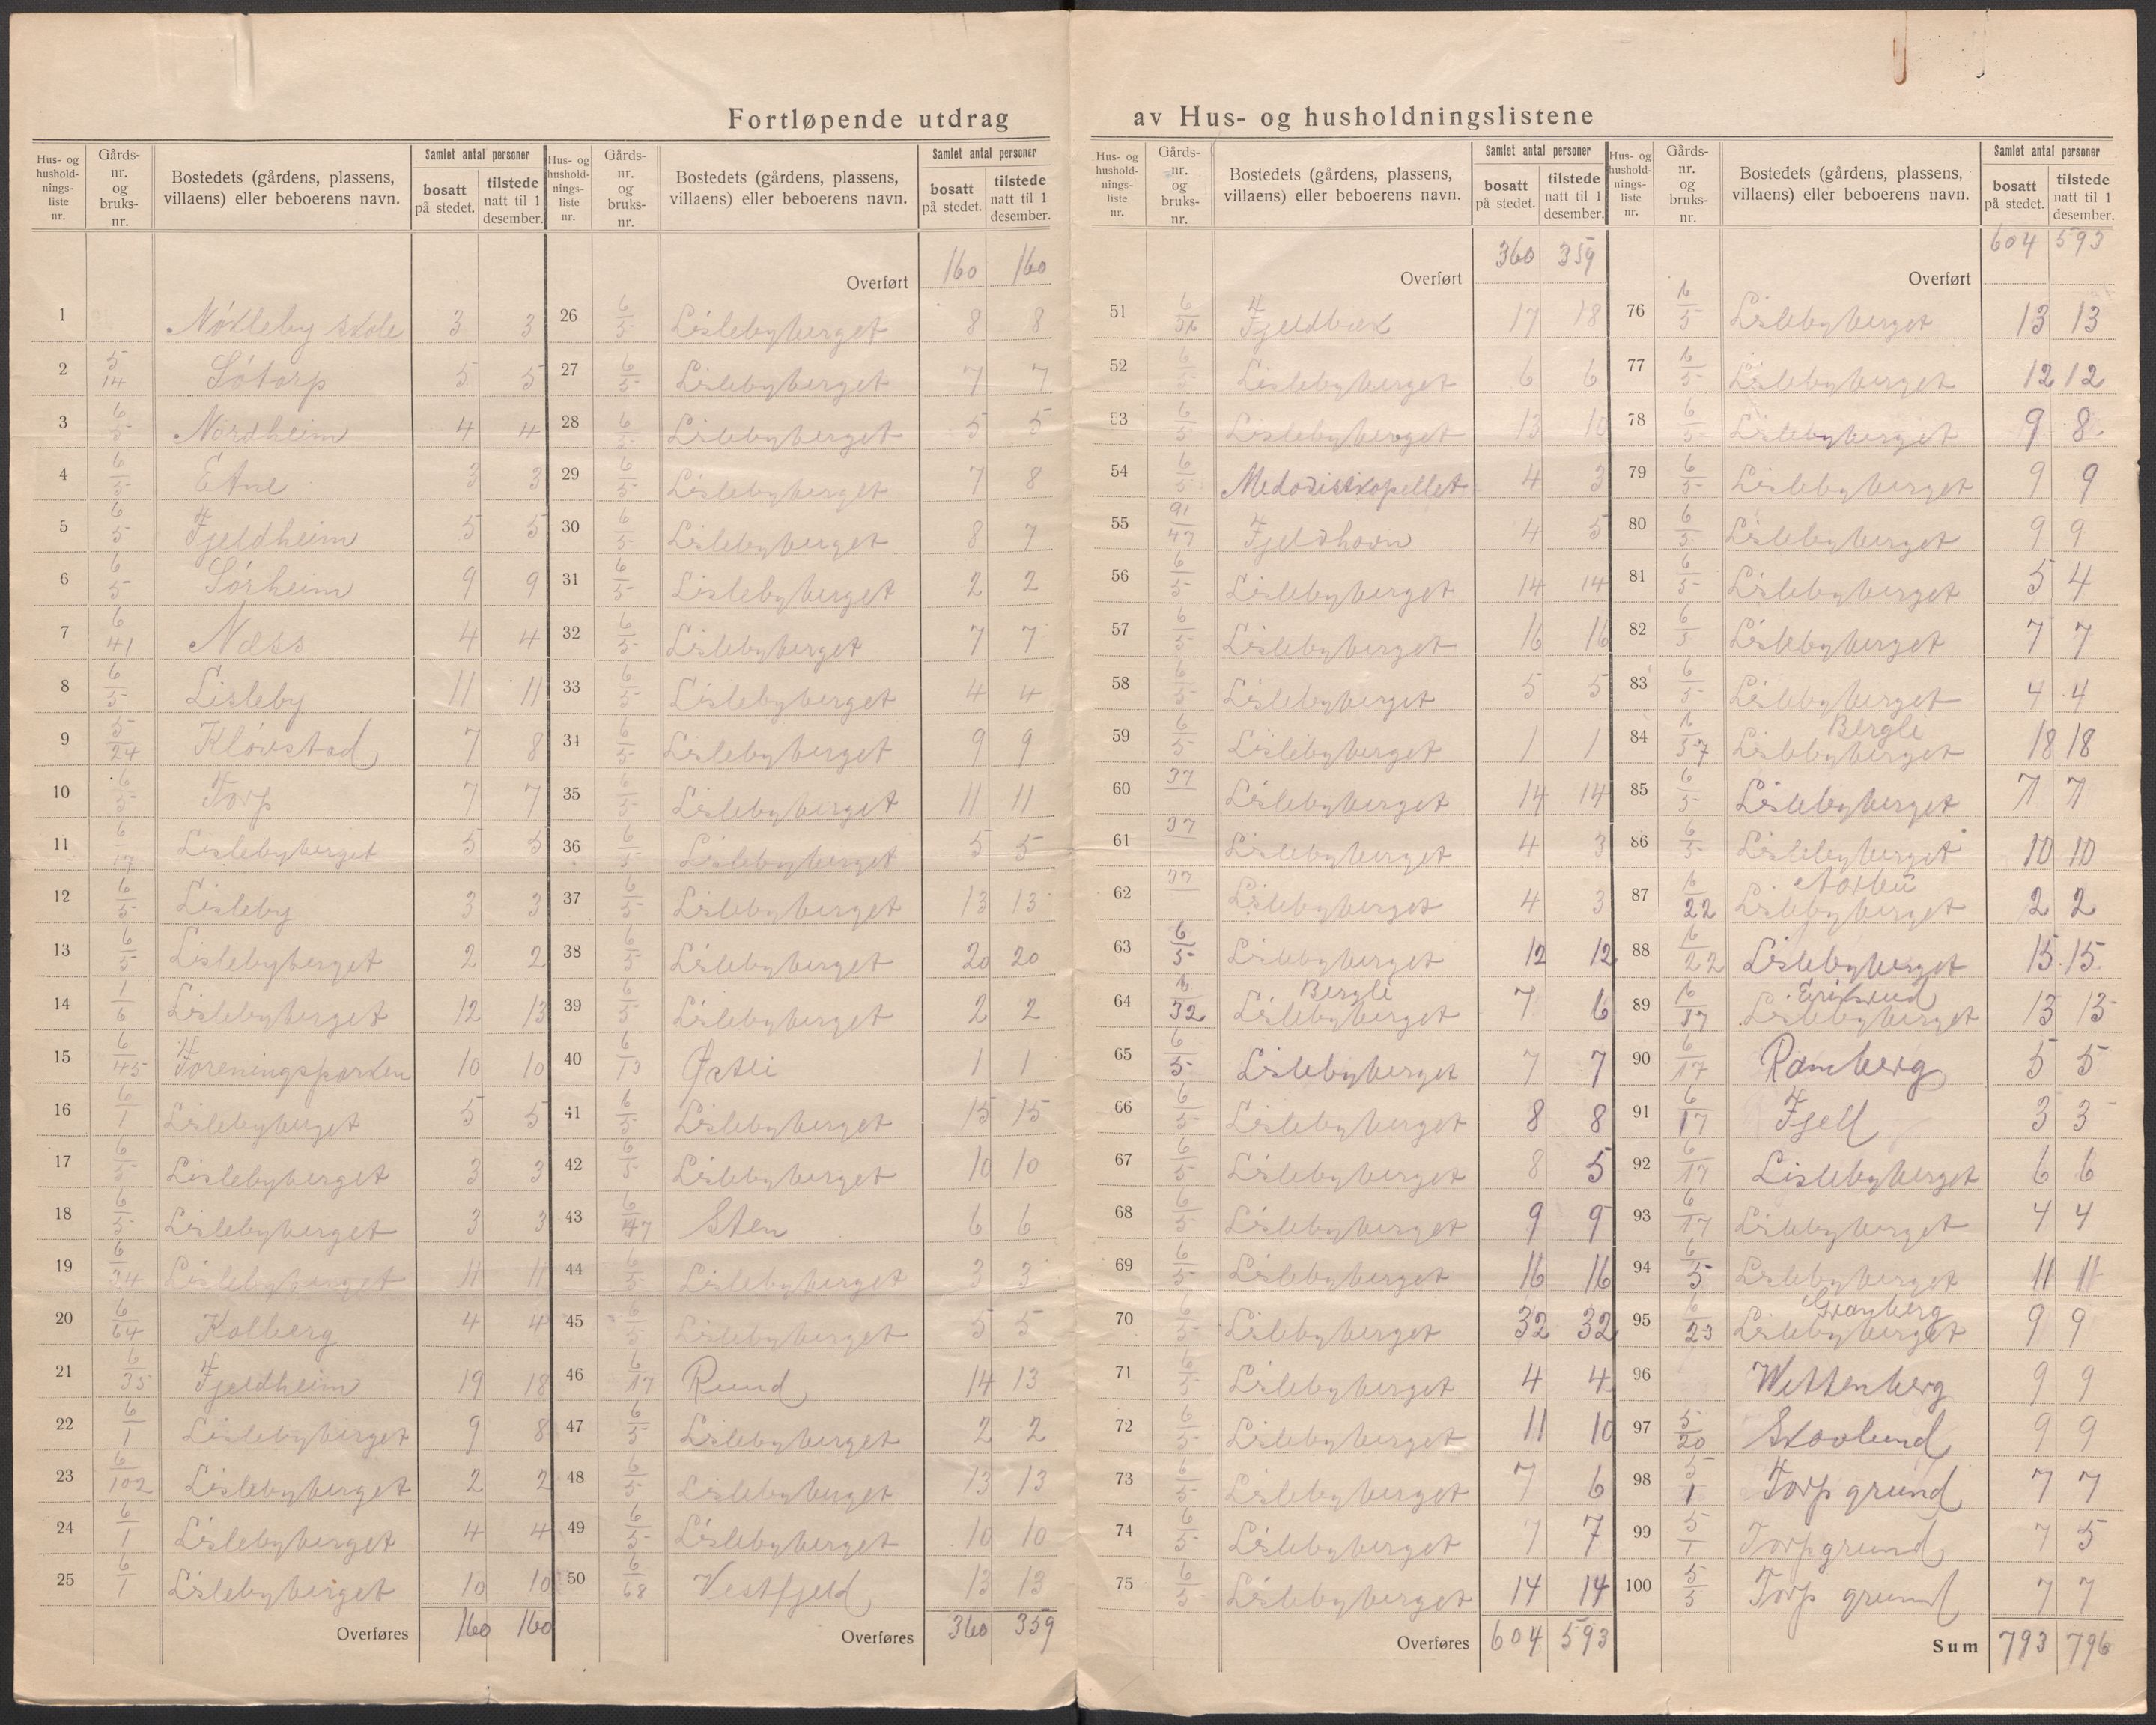 Fortløpende utdrag av Hus- og husholdningslistene
Hus- og husholdnings-liste nr. Gårds-nr. og bruks-nr. Bostedets (gårdens, plassens, villaens) eller beboerens navn. Samlet antal personer bosatt på stedet. tilstede natt til 1 desember.
1 Nøkleby skole 3 3
2 5/14 Søtorp 5 5
3 6/5 Nordheim 4 4
4 6/5 Etne 3 3
5 6/5 Fjeldheim 5 5
6 6/5 Sørheim 9 9
7 6/41 Næss 4 4
8 6/5 Lisleby 11 11
9 5/24 Kløvstad 7 8
10 6/5 Torp 7 7
11 6/17 Lislebyberget 5 5
12 6/5 Lisleby 3 3
13 6/5 Lislebyberget 2 2
14 1/6 Lislebyberget 12 13
15 6/45 Foreningsparken 10 10
16 6/1 Lislebyberget 5 5
17 6/5 Lislebyberget 3 3
18 6/5 Lislebyberget 3 3
19 6/34 Lislebyberget 11 11
20 6/64 Kolberg 4 4
21 6/35 Fjeldheim 19 18
22 6/1 Lislebyberget 9 8
23 6/102 Lislebyberget 2 2
24 6/1 Lislebyberget 4 4
25 6/1 Lislebyberget 10 10
Overføres 160 160
Hus- og husholdnings-liste nr. Gårds-nr. og bruks-nr. Bostedets (gårdens, plassens, villaens) eller beboerens navn. Samlet antal personer bosatt på stedet. tilstede natt til 1 desember.
Overført 160 160
26 6/5 Lislebyberget 8 8
27 6/5 Lislebyberget 7 7
28 6/5 Lislebyberget 5 5
29 6/5 Lislebyberget 7 8
30 6/5 Lislebyberget 8 7
31 6/5 Lislebyberget 2 2
32 6/5 Lislebyberget 7 7
33 6/5 Lislebyberget 4 4
34 6/5 Lislebyberget 9 9
35 6/5 Lislebyberget 11 11
36 6/5 Lislebyberget 5 5
37 6/5 Lislebyberget 13 13
38 6/5 Lislebyberget 20 20
39 6/5 Lislebyberget 2 2
40 6/13 Østli 1 1
41 6/5 Lislebyberget 15 15
42 6/5 Lislebyberget 10 10
43 6/47 Sten 6 6
44 6/5 Lislebyberget 3 3
45 6/5 Lislebyberget 5 5
46 6/17 Rund 14 13
47 6/5 Lislebyberget 2 2
48 6/5 Lislebyberget 13 13
49 6/5 Lislebyberget 10 10
50 6/68 Vestfjeld 13 13
Overføres 360 359
Hus- og husholdnings-liste nr. Gårds-nr. og bruks-nr. Bostedets (gårdens, plassens, villaens) eller beboerens navn. Samlet antal personer bosatt på stedet. tilstede natt til 1 desember.
Overført 360 359
51 Fjeldbæk 17 18
52 6/5 Lislebyberget 6 6
53 6/5 Lislebyberget 13 10
54 6/5 Medodistkapellet 4 3
55 91/47 Fjeldhavn 4 5
56 6/5 Lislebyberget 14 14
57 6/5 Lislebyberget 16 16
58 6/5 Lislebyberget 5 5
59 6/5 Lislebyberget 1 1
60 37 Lislebyberget 14 14
61 37 Lislebyberget 4 3
62 37 Lislebyberget 4 3
63 6/5 Lislebyberget 12 12
64 6/32 Bergli Lislebyberget 7 6
65 6/5 Lislebyberget 7 7
66 6/5 Lislebyberget 8 8
67 6/5 Lislebyberget 8 5
68 6/5 Lislebyberget 9 9
69 6/5 Lislebyberget 16 16
70 6/5 Lislebyberget 32 32
71 6/5 Lislebyberget 4 4
72 6/5 Lislebyberget 11 10
73 6/5 Lislebyberget 7 6
74 6/5 Lislebyberget 7 7
75 6/5 Lislebyberget 14 14
Overføres 604 593
Hus- og husholdnings-liste nr. Gårds-nr. og bruks-nr. Bostedets (gårdens, plassens, villaens) eller beboerens navn. Samlet antal personer bosatt på stedet. tilstede natt til 1 desember.
Overført 604 593
76 6/5 Lislebyberget 13 13
77 6/5 Lislebyberget 12 12
78 6/5 Lislebyberget 9 8
79 6/5 Lislebyberget 9 9
80 6/5 Lislebyberget 9 9
81 6/5 Lislebyberget 5 4
82 6/5 Lislebyberget 7 7
83 6/5 Lislebyberget 4 4
84 6/37 Bergli Lislebyberget 18 18
85 6/5 Lislebyberget 7 7
86 6/5 Lislebyberget 10 10
87 6/22 Lislebyberget 2 2
88 6/22 Lislebyberget 15 15
89 6/17 Lislebyberget 13 13
90 6/17 Ramberg 5 5
91 6/17 Fjell 3 3
92 6/17 Lislebyberget 6 6
93 6/17 Lislebyberget 4 4
94 6/5 Lislebyberget 11 11
95 6/23 Granberg Lislebyberget 9 9
96 Wettenberg 9 9
97 5/20 Skovlund 9 9
98 5/1 Torp grund 7 7
99 5/1 Torpgrund 7 5
100 5/5 Torp grund 7 7
Sum 793 796